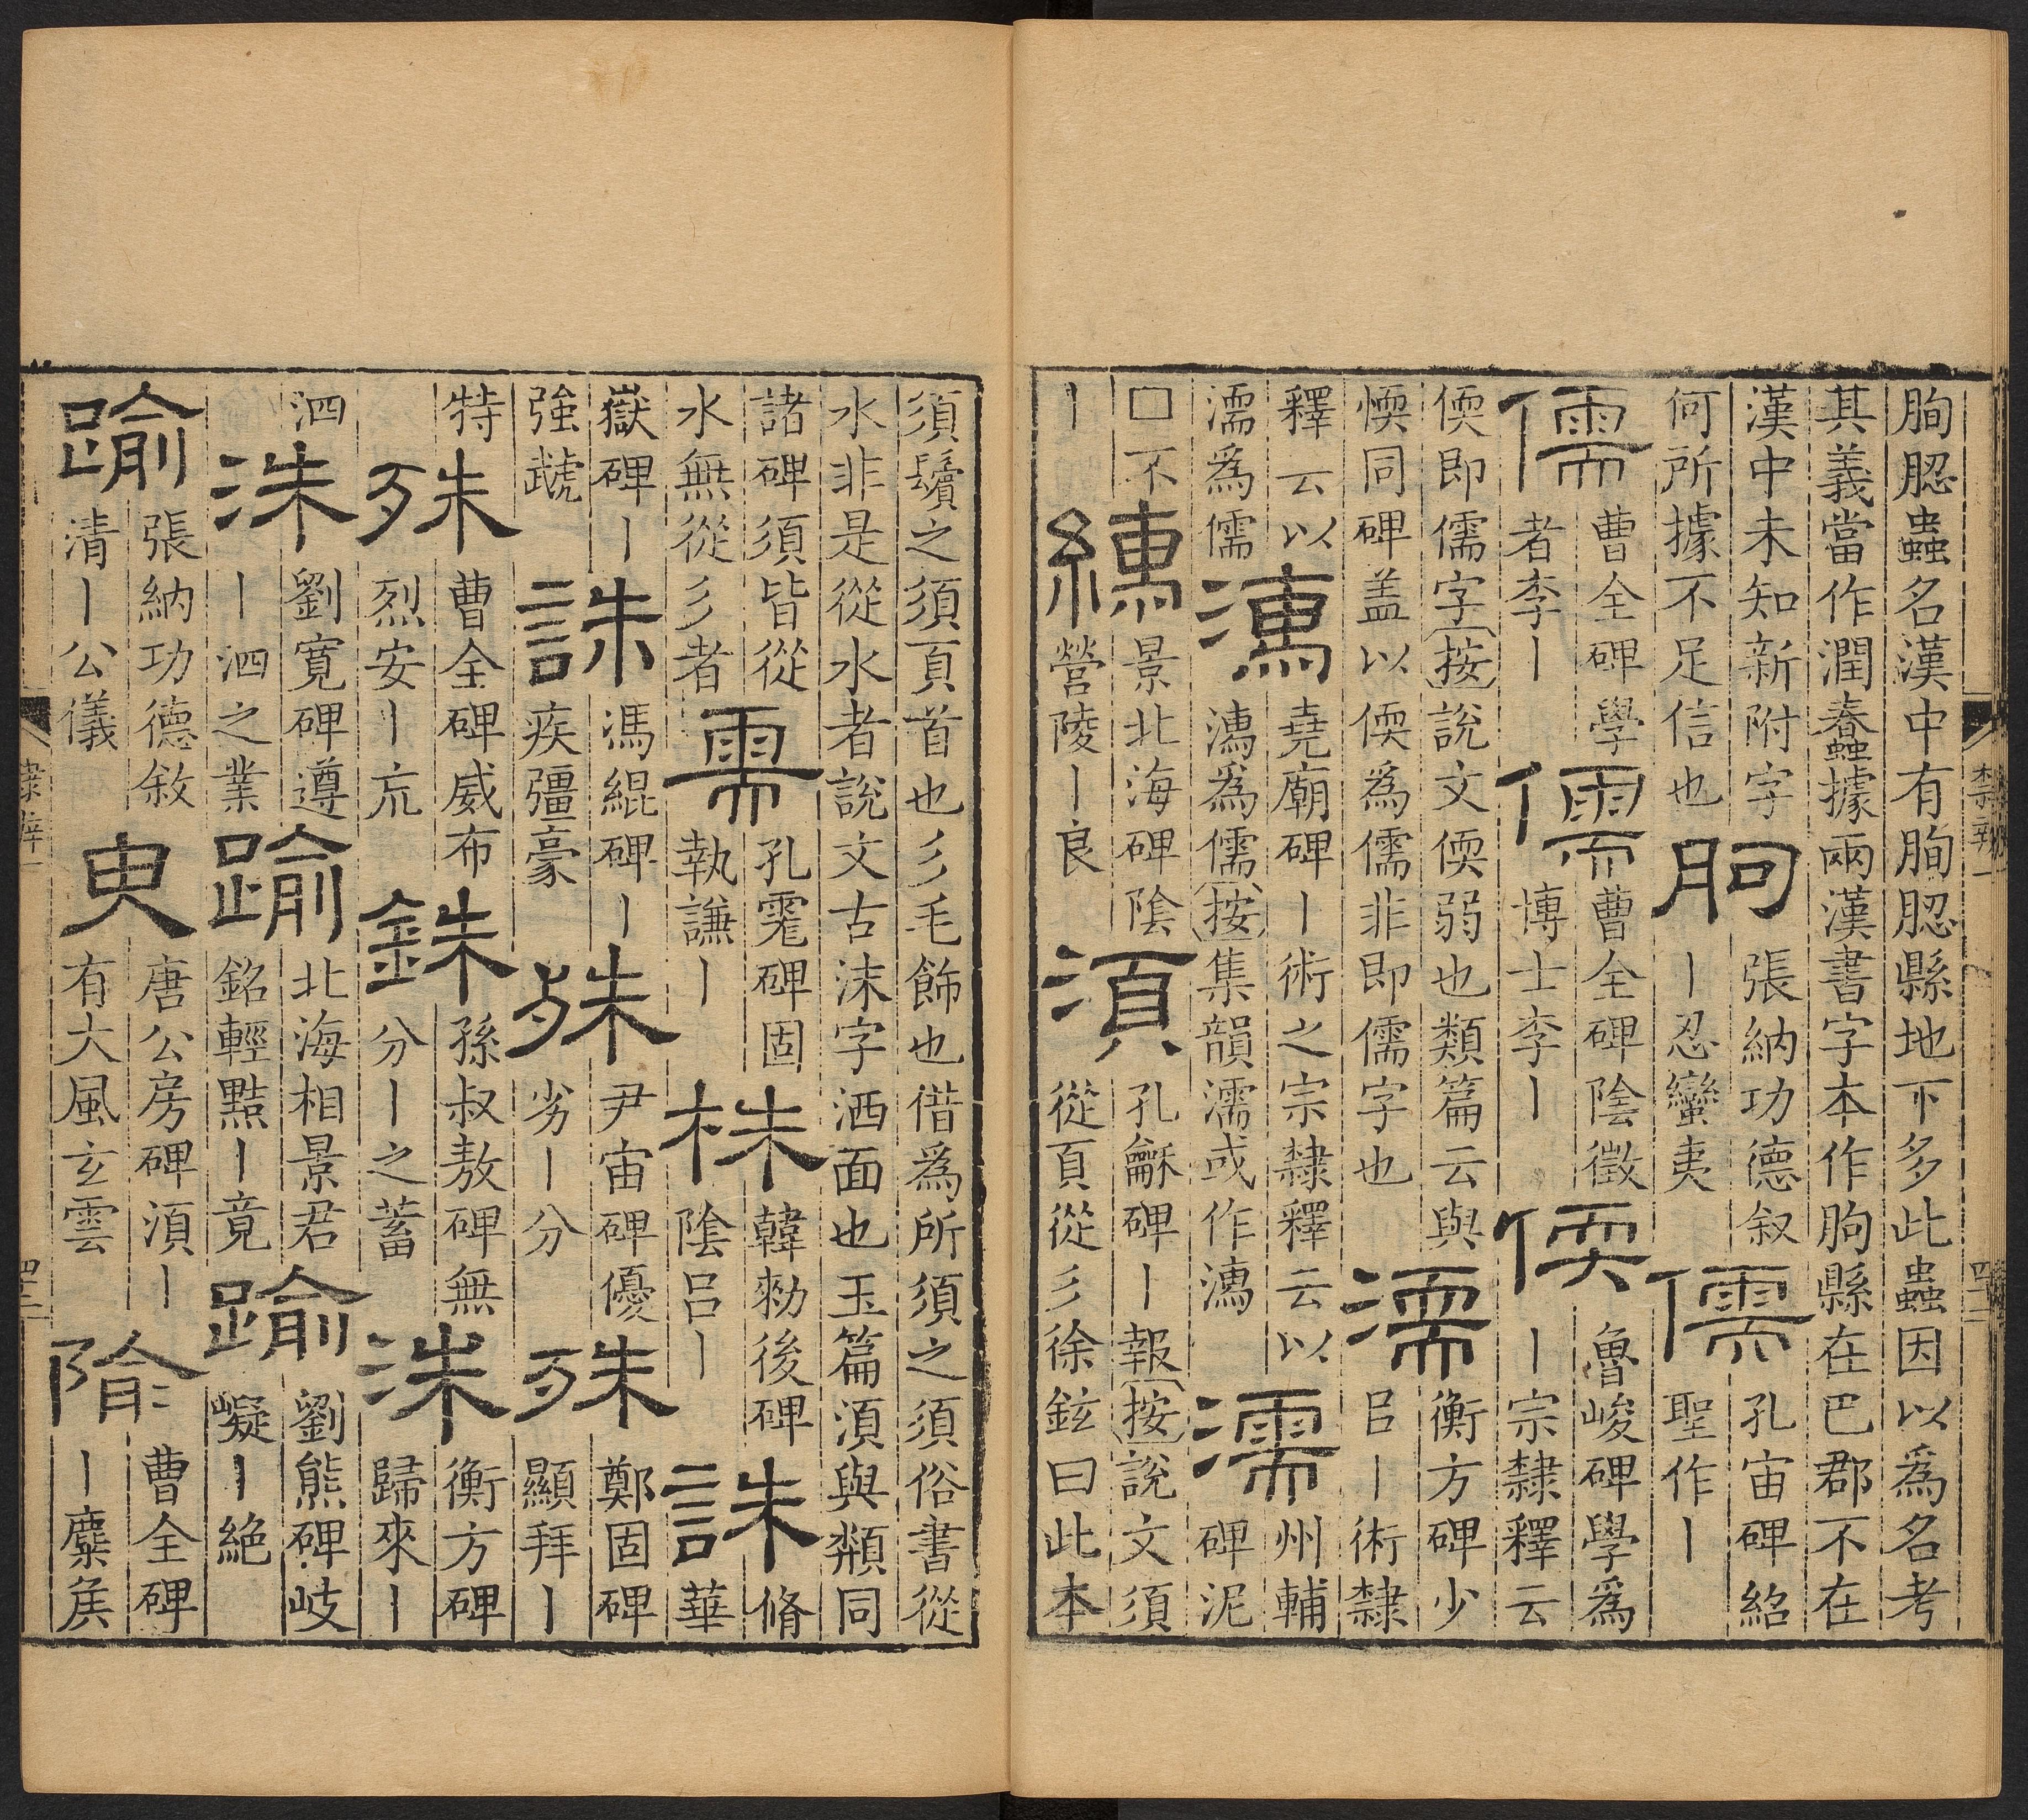 朐䏰蟲名漢中有朐䏰縣地下多此蟲因以為名考
其義當作潤蠢據兩漢書字本作朐縣在巴郡不在
漢中未知新附字
何所據不足信也
朐
張納功德叙
丨忍蠻夷
儒
孔宙碑紹
聖作丨
儒
曹全碑學
者李丨
儒
曹全碑陰徵
博士李丨
偄
魯峻碑學爲
丨宗隸釋云
偄即儒字按說文偄弱也類篇云與
愞同碑盖以偄爲儒非即儒字也
濡
衡方碑少
㠯丨術隸
釋云以
濡爲儒
漹
堯廟碑丨術之宗隸釋云以
漹爲儒按集韻濡或作漹
濡
州輔
碑泥
□不
丨
繻
景北海碑陰
營陵丨良
湏
孔龢碑丨報按說文須
從頁從彡徐鉉曰此本
須鬚之須頁首也彡毛飾也借爲所須之須俗書從
水非是從水者說文古沬字洒面也玉篇湏與類同
諸碑須皆從
水無從彡者
需
孔雿碑固
執謙丨
株
韓勑後碑
陰呂丨
誅
脩
華
嶽碑丨
強虣
誅
馮緄碑丨
疾彊豪
殊
尹宙碑優
劣丨分
殊
鄭固碑
顯拜丨
特
殊
曹全碑威布
烈安丨亢
銖
孫叔敖碑無
分丨之蓄
洙
衡方碑
歸來丨
泗
洙
劉寬碑遵
丨泗之業
踰
北海相景君
銘輕黠丨竟
踰
劉熊碑岐
嶷丨絕
踰
張納功德敘
清丨公儀
臾
唐公房碑湏丨
有大風玄雲
隃
曹全碑
丨麋矦